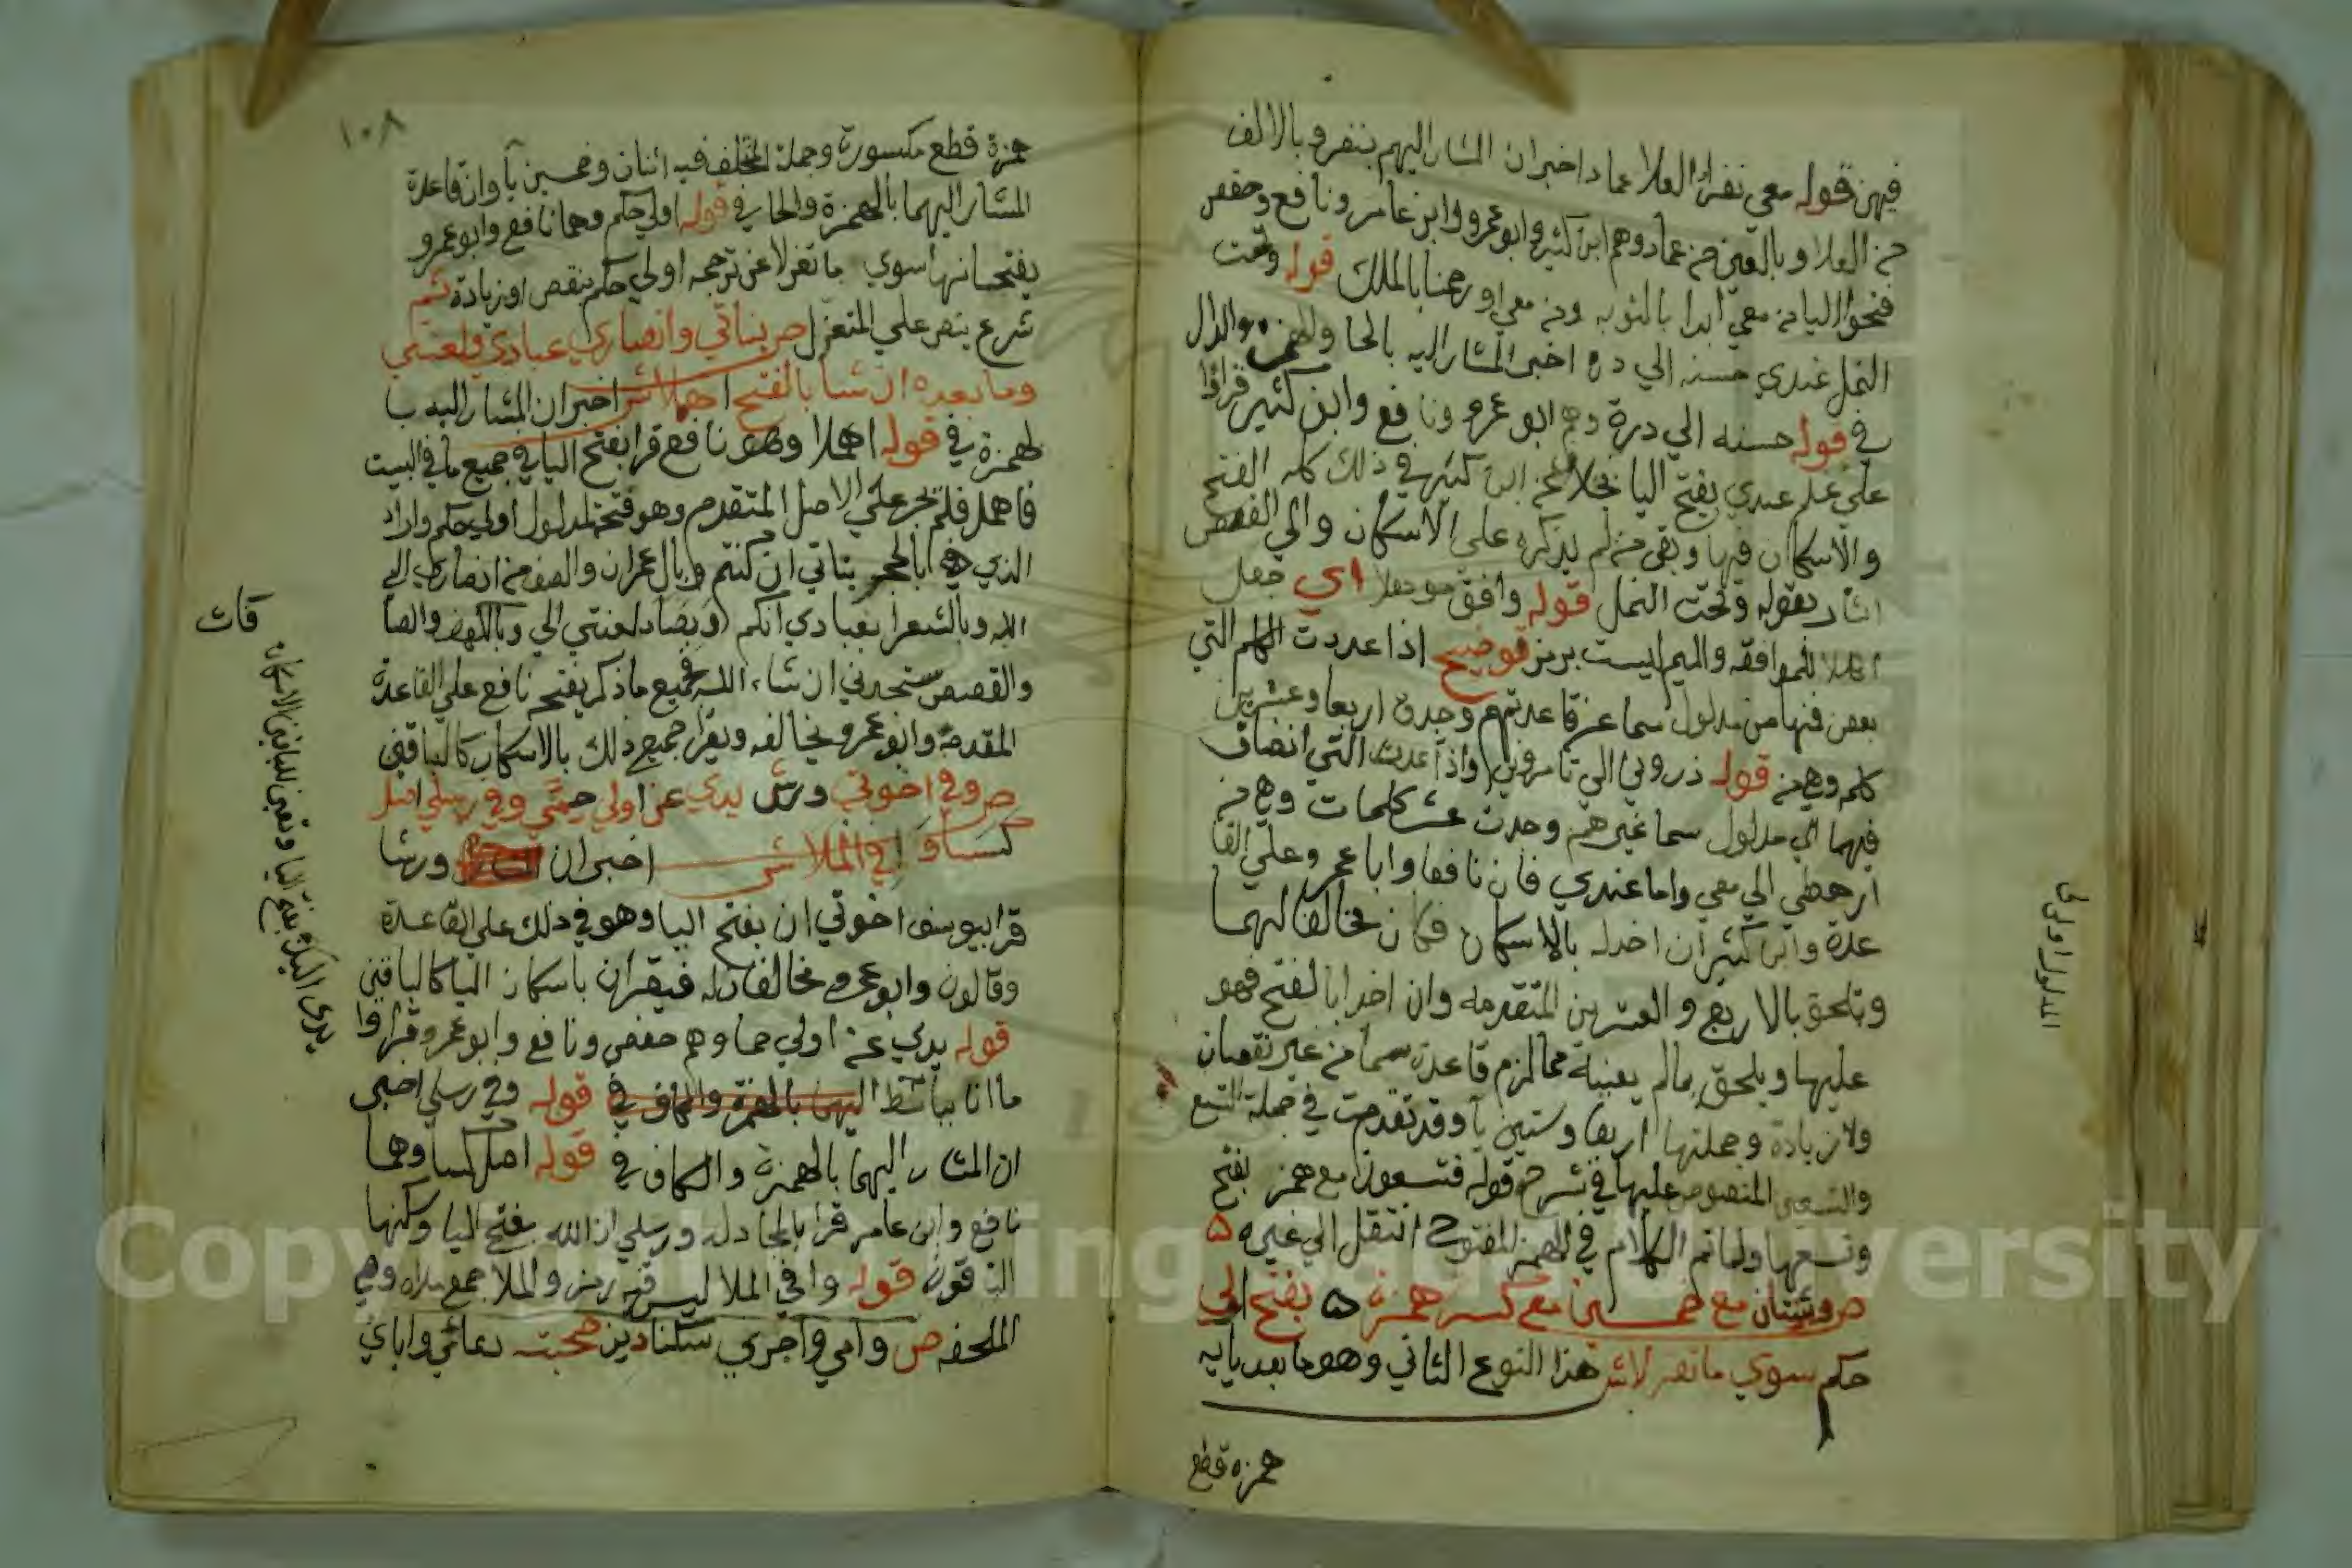 فيهن قوله معي نفر العلا عماد اخبر ان المشار اليهم بنفر وبالالف
من العلا وبالعين من عماد وهم ابن كثير وابو عمرو وابن عامر ونافع وحفص
فتحوا اليا من معي ابدا بالتوبه ومن معي او رحمنا بالملك قوله وتحت
النمل عندي حسنه الي دره اخبر المشار اليه بالحا والهمزه والدال
في قوله حسنه الي درة وهم ابو عمرو ونافع وابن كثير قراوا
علي علم عندي بفتح اليا بخلاف عن ابن كثير في ذلك كله الفتح
والاسكان فيها وبقي من لم يذكره علي الاسكان والي القصص
اشار بقوله وتحت النمل قوله وافق موهلا اي جعل
اهلا للموافقه والميم ليست برمز توضيح اذا عددت الكلم التي
بعض فيها من مدلول سما عن قاعدتهم وجدت اربعا وعشرين
كلمه وهي من قوله ذروني الي تامروني واذا عددت التي انضاف
فيها الي مدلول سما غيرهم وجدت عشر كلمات وهي من
ارهطي الي معي واما عندي فان نافعا وابا عمرو علي القا
عدة وابن كثير ان اخذ له بالاسكان فكان مخالفا لهما
وتلحق بالاربع والعشرين المتقدمه وان اخذ له بالفتح فهو
عليها ويلحق بما لم يعينه مما لزم قاعدة سما من غير نقصان
ولا زيادة وجملتها اربعا وستين يآ وقد تقدمت في جملة التسع
والتسعين المنصوص عليها في شرح قوله فتسعون مع همز بفتح
وتسعها ولما تم الكلام في الهمز المفتوح انتقل الي غيره
ص وثنتان مع خمسين مع كسر همزة بفتح اولي
حكم سوي ما تعزلا ش هذا النوع الثاني وهو ما بعد يايه
همزه قطع
المدلول اولي
١٠٨
همزة قطع مكسورة وجملة المختلف فيه اثنان وخمسين يآ وان قاعدة
المشار اليهما بالهمزة والحا في قوله اولي حكم وهما نافع وابو عمرو
يفتحانها سوي ما تعزلا عن ترجمه اولي حكم بنقص او زيادة ثم
شرع ينص علي المتعزل ص بناتي وانصاري عبادي ولعنتي
وما بعده ان شا بالفتح اهملا ش اخبر ان المشار اليه با
لهمزة في قوله اهملا وهو نافع قرا بفتح اليا في جميع ما في البيت
فاهمل فلم يجر علي الاصل المتقدم وهو فتحه لمدلول اولي حكم واراد
الذي هو بالحجر بناتي ان كنتم وبال عمران والصف من انصاري الي
الله وبالشعرا بعبادي انكم وبصاد لعنتي الي وبالكهف والصا
والقصص ستجدني ان شاء الله فجميع ما ذكر يفتحه نافع علي القاعدة
المقدمة وابو عمرو يخالفه ويقرا جميع ذلك بالاسكان كالباقين
ص وفي اخوتي ورش يدي عن اولي حمي وفي رسلي اصل
كسا وافي الملا ش اخبر ان ورشا
قرا بيوسف اخوتي ان بفتح اليا وهو في ذلك علي القاعدة
وقالون وابو عمرو مخالفان له فيقران باسكان اليا كالباقين
قوله يدي عن اولي حما وهم حفص ونافع وابو عمرو قراوا
ما انا بباسط اليهما بالهمزة والكاف في قوله وفي رسلي اخبر
ان المشار اليهما بالهمزة والكاف في قوله اصل كسا وهما
نافع وابن عامر قرا بالمجادله ورسلي ان الله بفتح اليا وسكنها
الباقون قوله وافي الملا ليس فيه رمز والملا جمع ملاه وهي
الملحفه ص وامي واجري سكنا دين صحبته دعائي واباي
يدي اليك بفتح اليا وتعين للباقين الاسكان